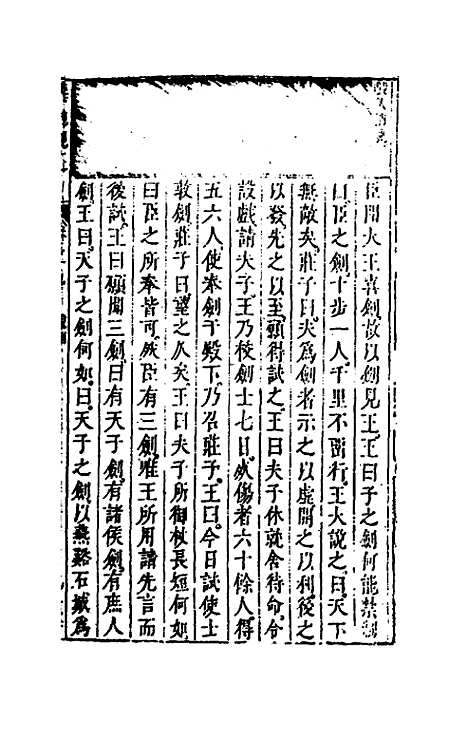 臣聞大王喜劍故以劍見王王曰子之劍何能禁制
曰臣之劍十步一人千里不留行王大說之曰天下
無敵矣莊子曰夫為劍者示之以虛開之以利後之
以發先之以至願得試之王曰夫子休就舍待命令
設戲請夫子王乃校劍士七日死傷者六十餘人得
五六人使奉劍于殿下乃召莊子王曰今日試使士
敦劍莊子曰望之久矣王曰夫子所御杖長短何如
曰臣之所奉皆可然臣有三劍唯王所用請先言而
後試王曰願聞三劍曰有天子劍有諸侯劍有庶人
劍王曰天子之劍何如曰天子之劍以燕谿石城為